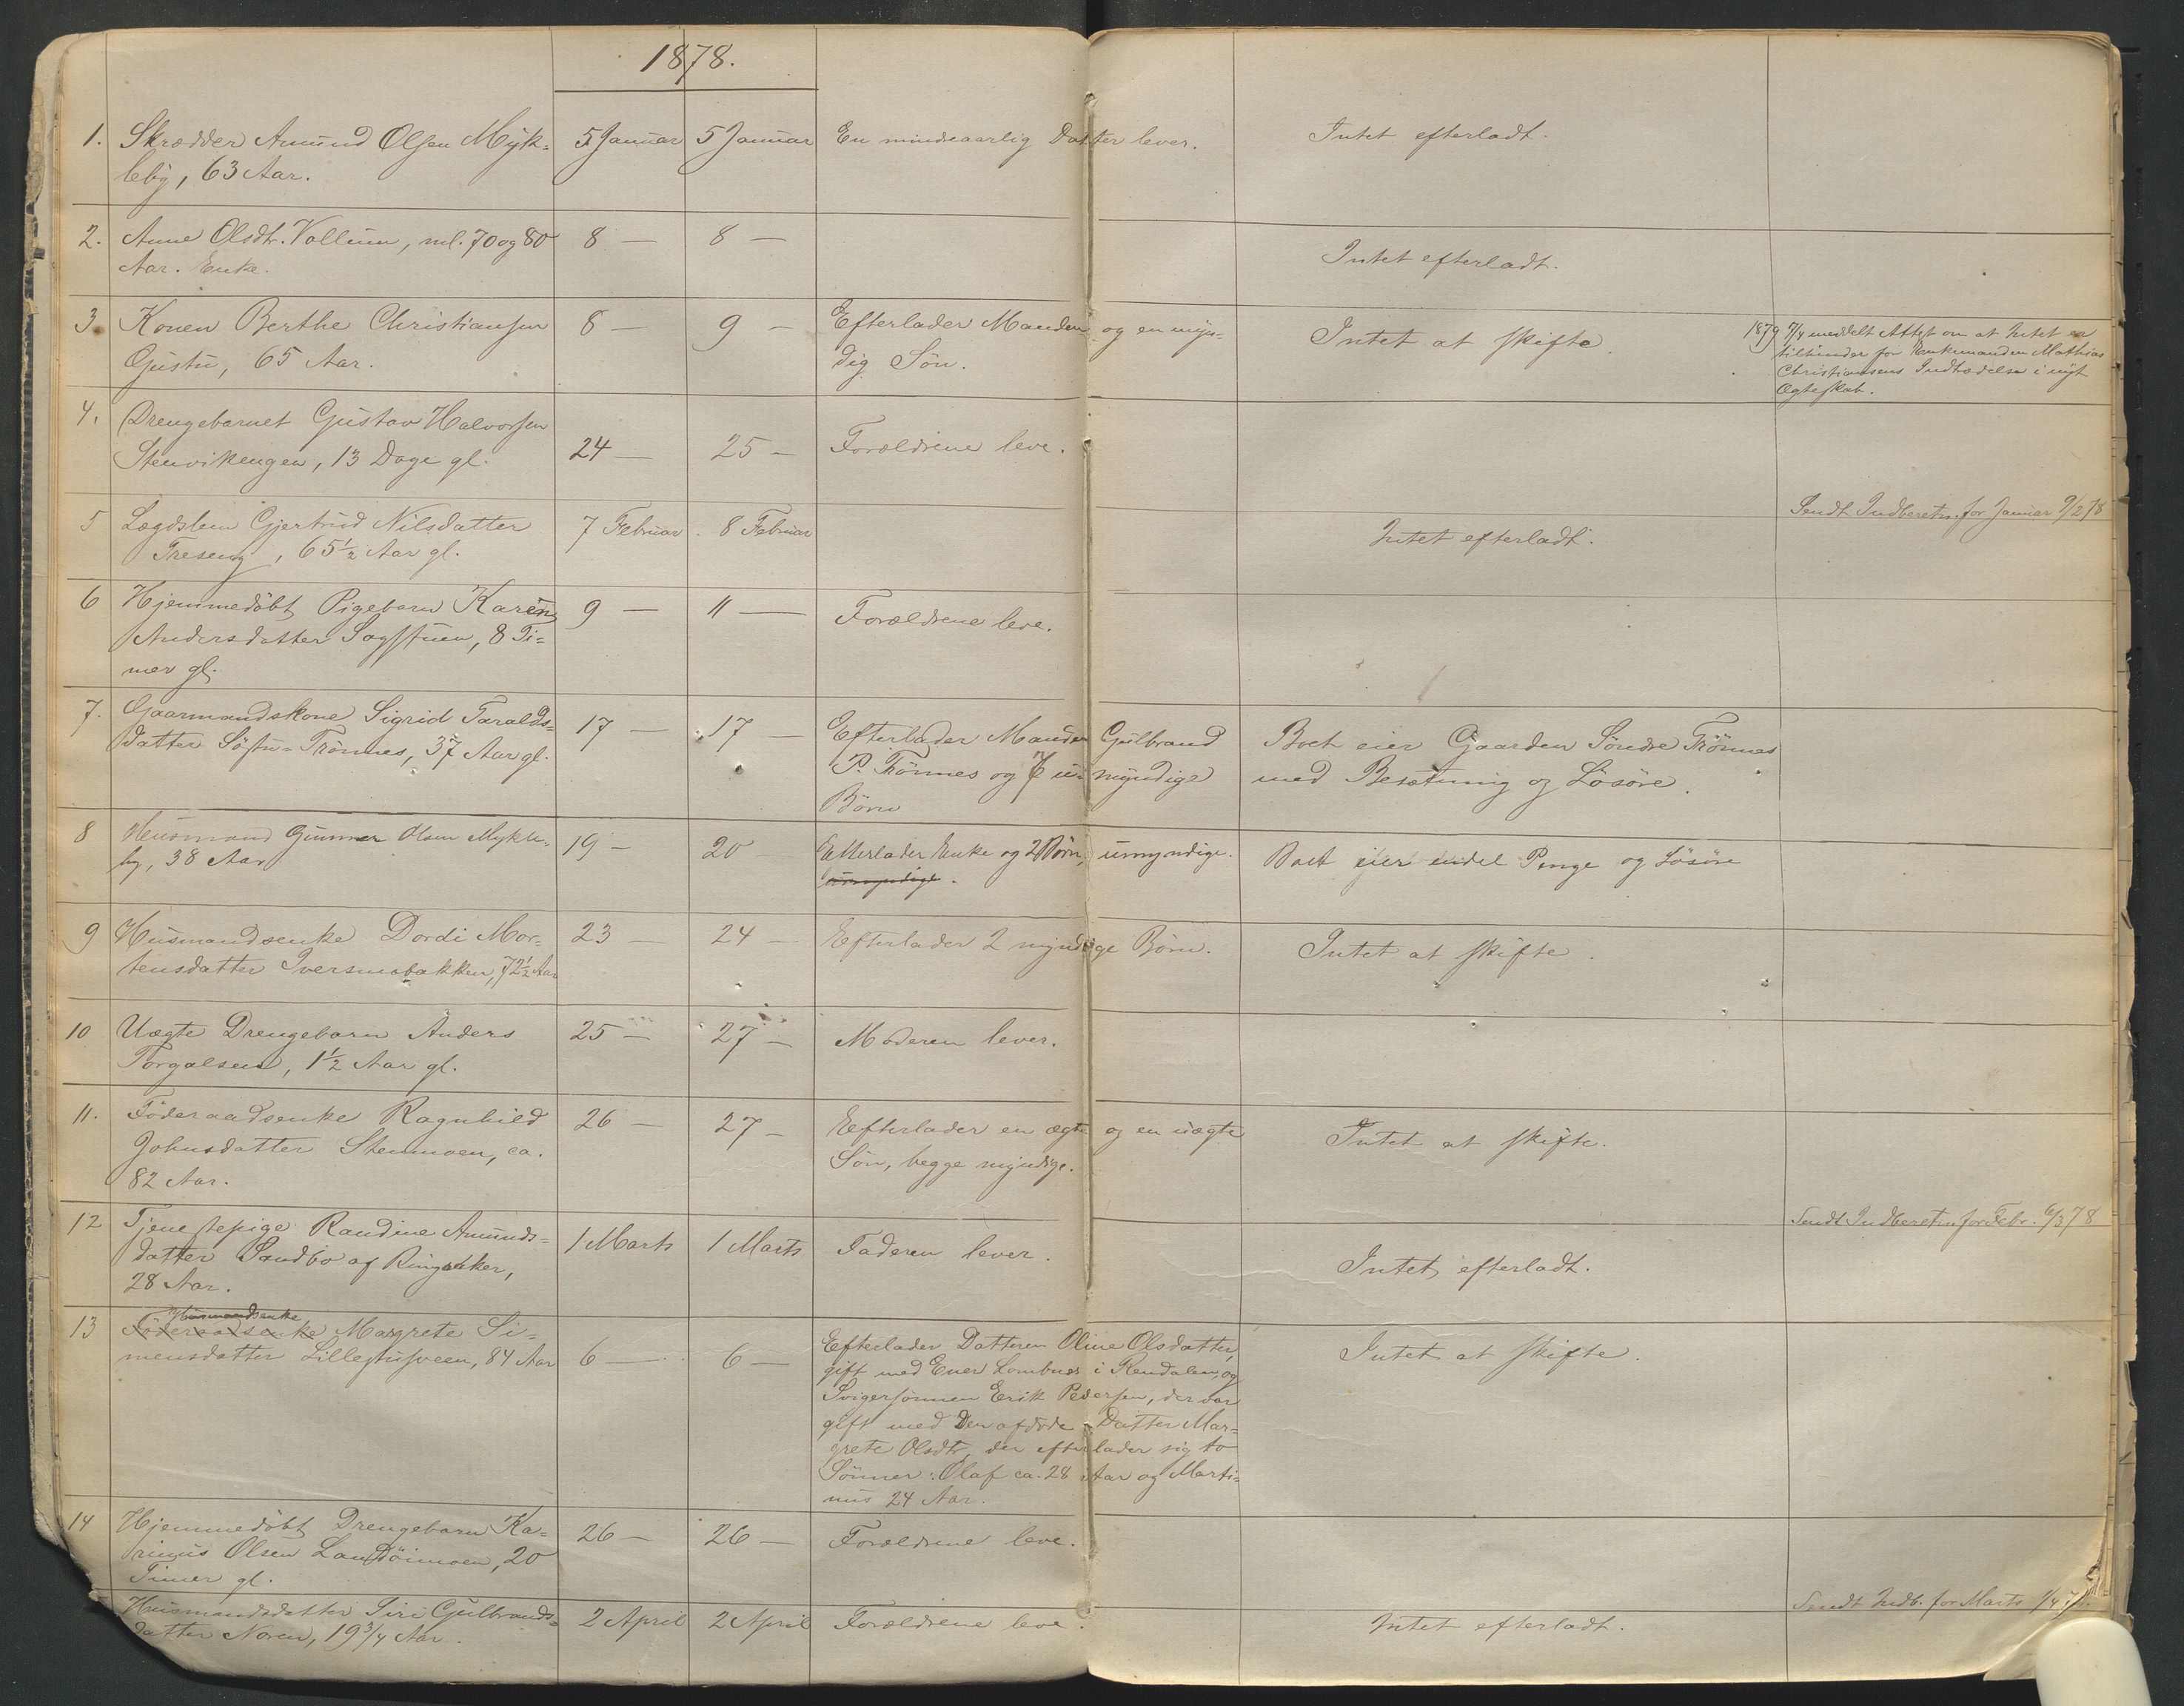 1878.
1. Skrædder Amund Olsen Myk- 5 Januar 5 Januar En mindreaarlig Datter lever. Intet efterladt.
leby, 63 Aar.
2. Anne Olsdtr. Vollum, ml. 70 og 80 8 — 8 — Intet efterladt.
Aar. Enke.
3. Konen Berthe Christiansen 8 — 9 — Efterlader Manden og en myn- Intet at skifte.
Gustu, 65 Aar. dig Sön.
1879 7/4 meddelt Attest om at Intet er
tilhinder for Enkemanden Mathias
Christiansens Indtrædelse i nyt
Ægteskab.
4. Drengebarnet Gustav Halvorsen
Stenvikengen, 13 Dage gl. 24 — 25 — Forældrene leve.
Sendt Indberetn. for Januar 9/2 78
5 Lægdslem Gjertrud Nilsdatter 7 Februar 8 Februar Intet efterladt.
Treseng, 65½ Aar gl.
6 Hjemmedöbt Pigebarn Karen 9 — 11 — Forældrene leve.
Andersdatter Sagstuen, 8 Ti-
mer gl.
7. Gaarmandskone Sigrid Taralds- 17 — 17 — Efterlader Manden Gulbrand Boet eier Gaarden Söndre Trönnes
datter Söstu-Trönnes, 37 Aar gl. P. Trönnes og 7 umyndige med Besætning og Lösöre.
Börn
8 Husmand Gunner Olsen Mykle- 19 — 20 Efterlader Enke og 2 Börn, umyndige. Boet eier endel Penge og Lösöre
by, 38 Aar umyndige.
9 Husmandsenke Dordi Mor- 23 — 24 — Efterlader 2 myndige Börn. Intet at skifte.
tensdatter Iversmobakken, 72½ Aar
10 Uægte Drengebarn Anders 25 — 27 — Moderen lever.
Torgalsen, 1½ Aar gl.
11. Föderaadsenke Ragnhild 26 — 27 — Efterlader en ægte og en uægte Intet at skifte.
Johnsdatter Stenmoen, ca. Sön, begge myndige.
82 Aar.
Sendt Indberetn. for Febr. 6/3 78
12 Tjenestepige Randine Amunds- 1 Marts 1 Marts Faderen lever. Intet efterladt.
datter Sandbo af Ringsaker,
28 Aar.
Husmandsenke
13 Föderaadsenke Margrete Si- Efterlader Datteren Oline Olsdatter, Intet at skifte.
mensdatter Lillestusveen, 84 Aar 6 — 6 — gift med Ener Lombnes i Rendalen, og
Svigersönnen Erik Pedersen, der var
gift med den afdöde Datter Mar-
grete Olsdtr, der efterlader sig to
Sönner: Olaf ca. 28 Aar og Marti-
nus 24 Aar.
14 Hjemmedöbt Drengebarn Ka- 26 — 26 — Forældrene leve.
rinus Olsen Landöimoen, 20
Timer gl.
Sendt Indb. for Marts 1/4 78.
Husmandsdatter Siri Gulbrands- 2 April 2 April Forældrene leve. Intet efterladt.
datter Noren, 19¾ Aar.